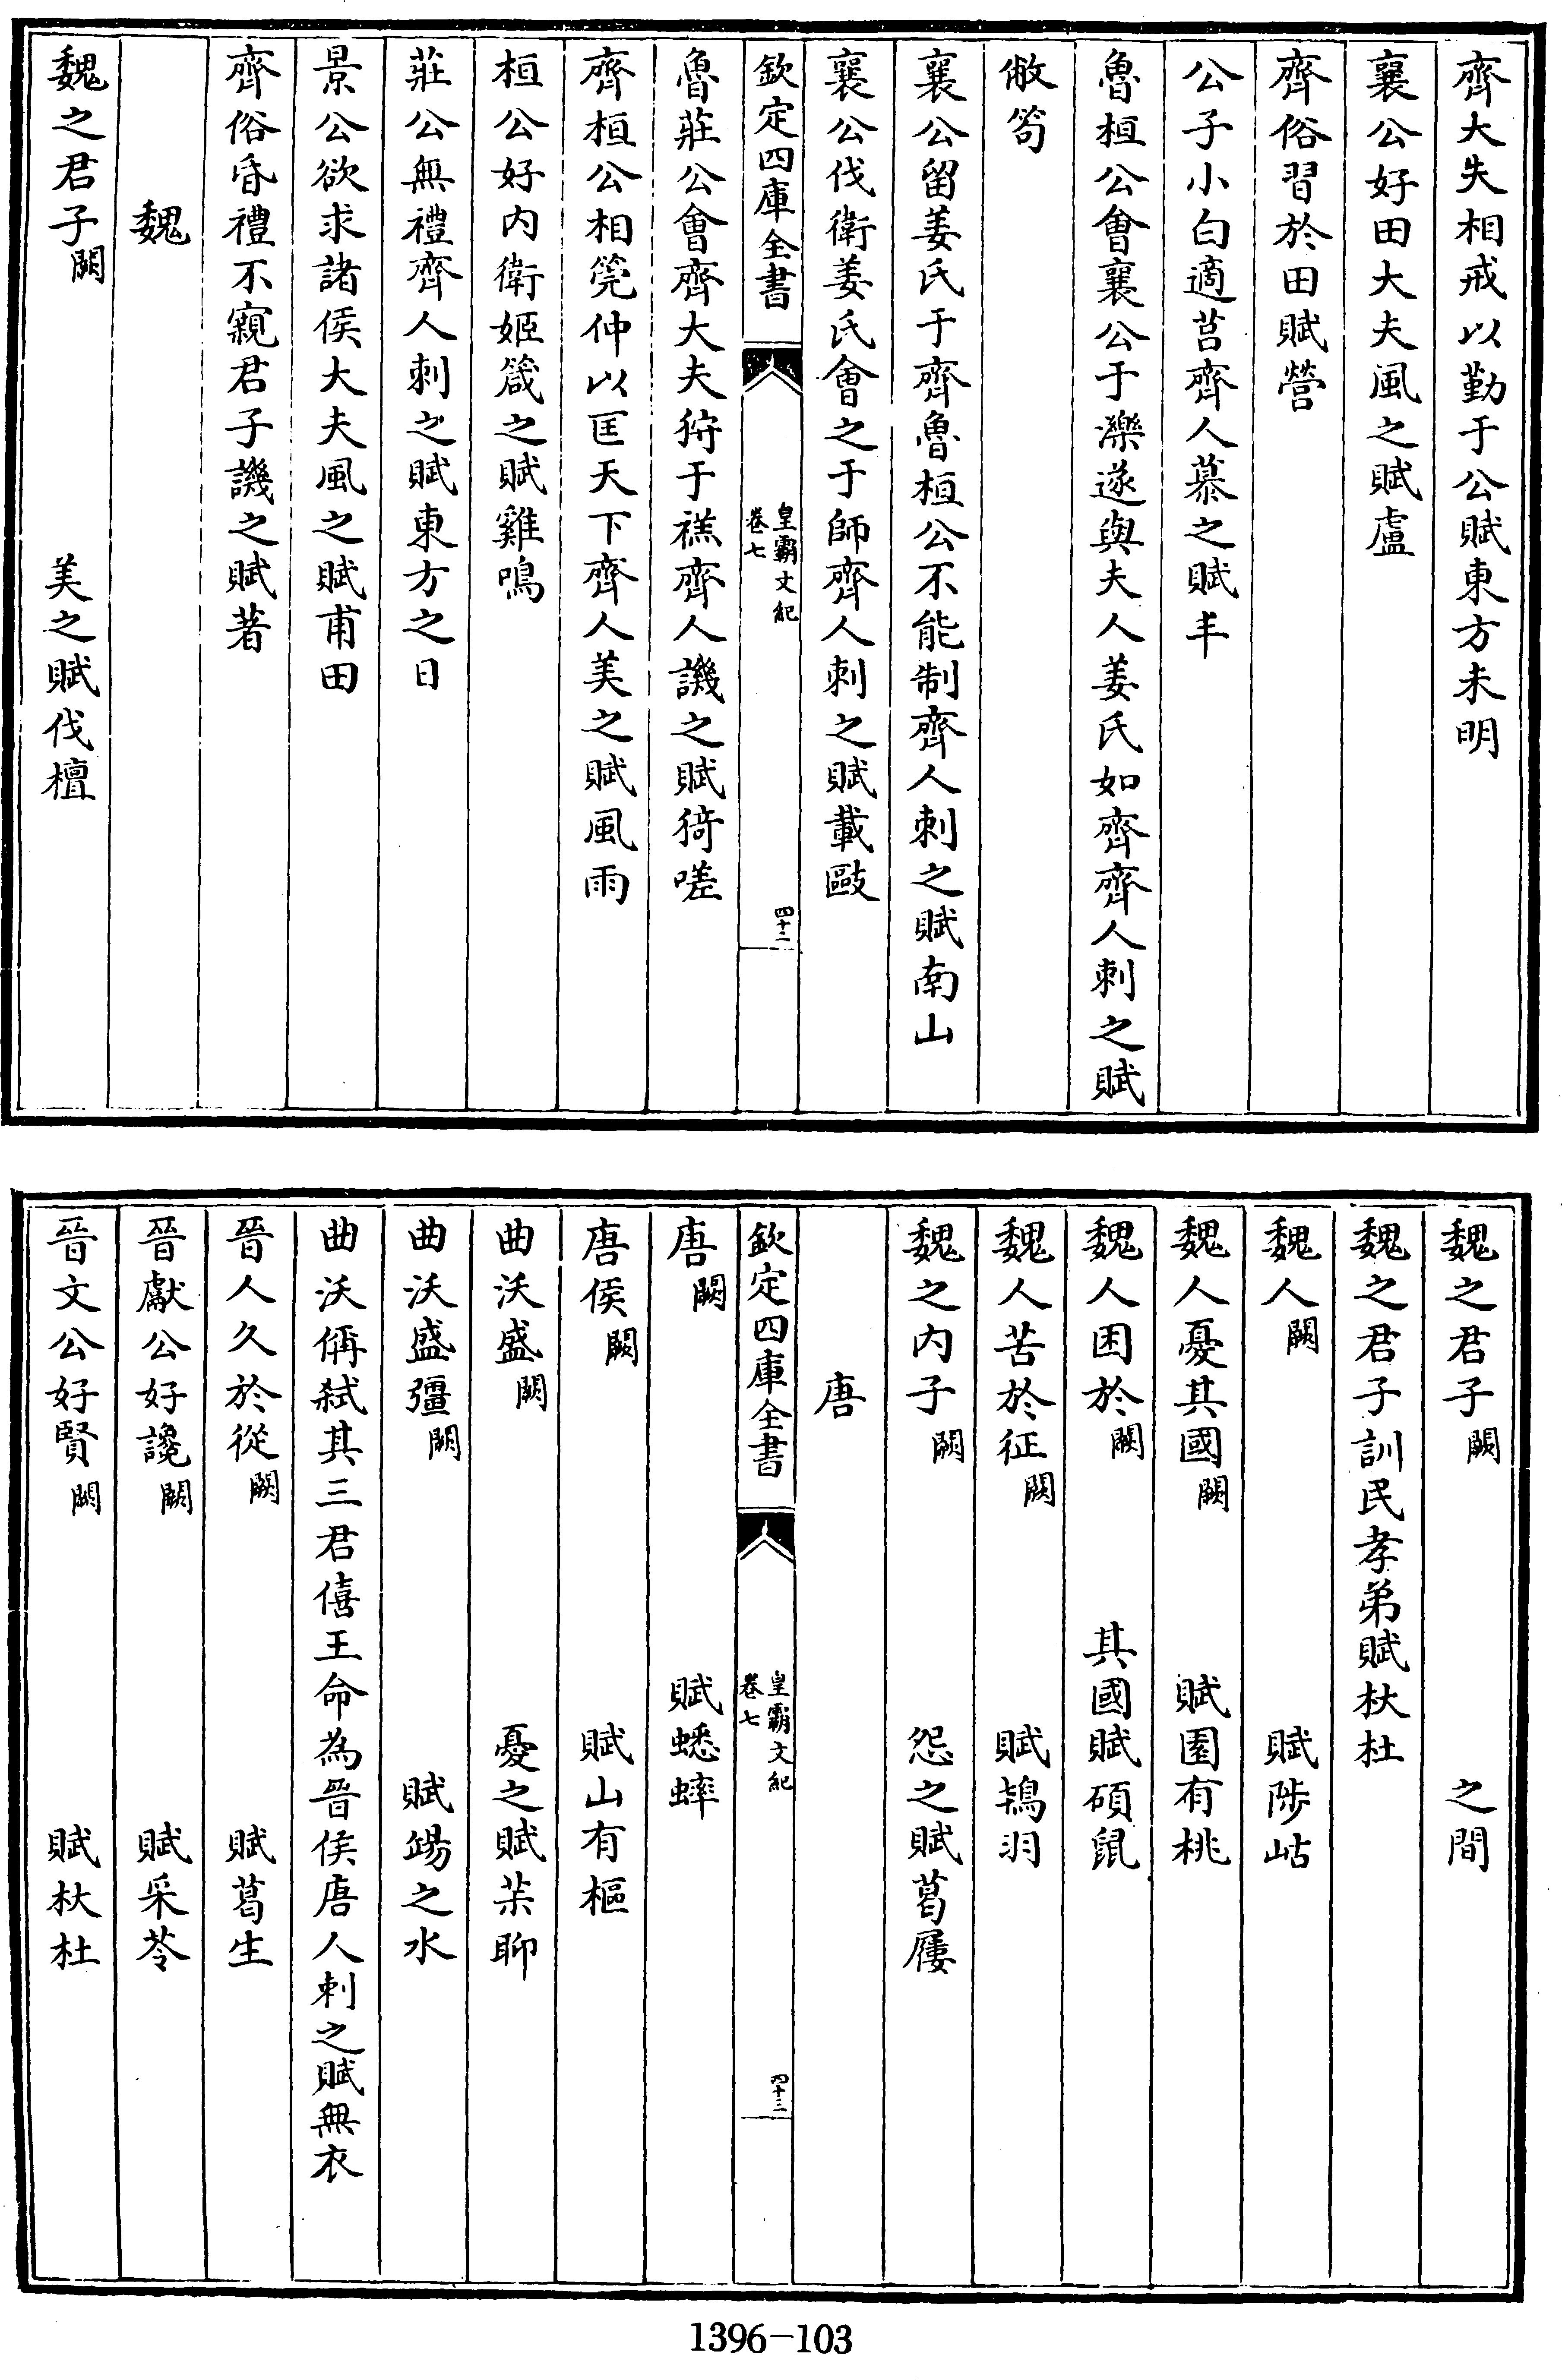 齊大失相戒以勤于公賦東方未明
襄公好田大夫風之賦盧
齊俗習於田賦營
公子小白適莒齊人慕之賦丰
魯桓公會襄公于濼遂與夫人姜氏如齊齊人刺之賦
敝笱
襄公留姜氏于齊魯桓公不能制齊人刺之賦南山
襄公伐衛姜氏會之于師齊人刺之賦載敺
欽定四庫全書
皇霸文紀
卷七
四十二
魯莊公會齊大夫狩于禚齊人譏之賦猗嗟
齊桓公相筦仲以匡天下齊人美之賦風雨
桓公好内衛姬箴之賦雞鳴
莊公無禮齊人刺之賦東方之日
景公欲求諸侯大夫風之賦甫田
齊俗昏禮不親君子譏之賦著
魏
魏之君子闕 美之賦伐檀
魏之君子闕 之間
魏之君子訓民孝弟賦杕杜
魏人闕 賦陟岵
魏人憂其國闕 賦園有桃
魏人困於闕 其國賦碩鼠
魏人苦於征闕 賦鴇羽
魏之内子闕 怨之賦葛屨
唐
欽定四庫全書
皇霸文紀
卷七
四十三
唐闕 賦蟋蟀
唐侯闕 賦山有樞
曲沃盛闕 憂之賦茮聊
曲沃盛彊闕 賦昜之水
曲沃偁弑其三君僖王命為晉侯唐人刺之賦無衣
晉人久於從闕 賦葛生
晉獻公好讒闕 賦采苓
晉文公好賢闕 賦杕杜
1396-103